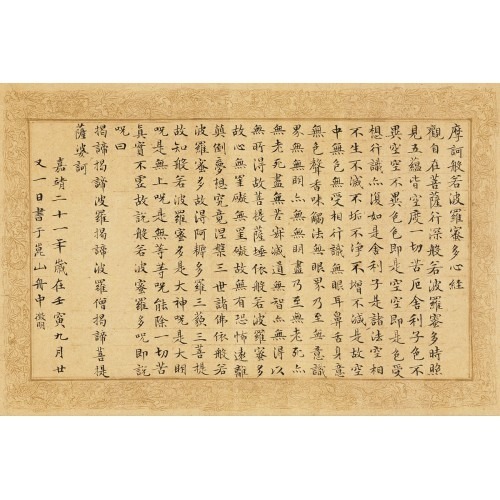 摩訶般若波羅蜜多心經
觀自在菩薩行深般若波羅蜜多時照
見五蘊皆空度一切苦厄舍利子色不
異空空不異色色即是空空即是色受
想行識亦復如是舍利子是諸法空相
不生不滅不垢不淨不增不減是故空
中無色無受相行識無眼耳鼻舌身意
無色聲香味觸法無眼界乃至無意識
界無無明亦無無明盡乃至無老死亦
無老死盡無苦寂滅道無智亦無得以
無所得故菩提薩埵依般若波羅蜜多
故心無罣礙無罣礙故無有恐怖遠離
顛倒夢想究竟涅槃三世諸佛依般若
波羅蜜多故得阿耨多羅三藐三菩提
故知般若波羅蜜多是大神呪是大明
呪是無上呪是無等等呪能除一切苦
真實不虛故說般若波羅蜜多呪即說
呪曰
揭諦揭諦波羅揭諦波羅僧揭諦菩提
薩婆訶
嘉靖二十一年歲在壬寅九月廿
又一日書于崑山舟中 徵明